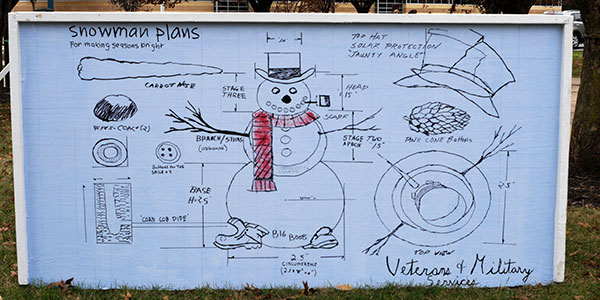 snowman plans
For making seasons bright
TOP HAT
SOLAR PROTECTION
JAUNTY ANGLE
CARROT NOSE
STAGE
THREE
HEAD
15"
SCARF
EYES - COAL (2)
BRANCH/STICKS
STAGE TWO
15"
PINE CONE Buttons
Buttons FOR THE
BASE
H-25"
"CORN COB PIPE"
BIG BOOTS
2.5
CIRCUMFERENCE
2.5'
TOP VIEW
Veterans & Military
Services